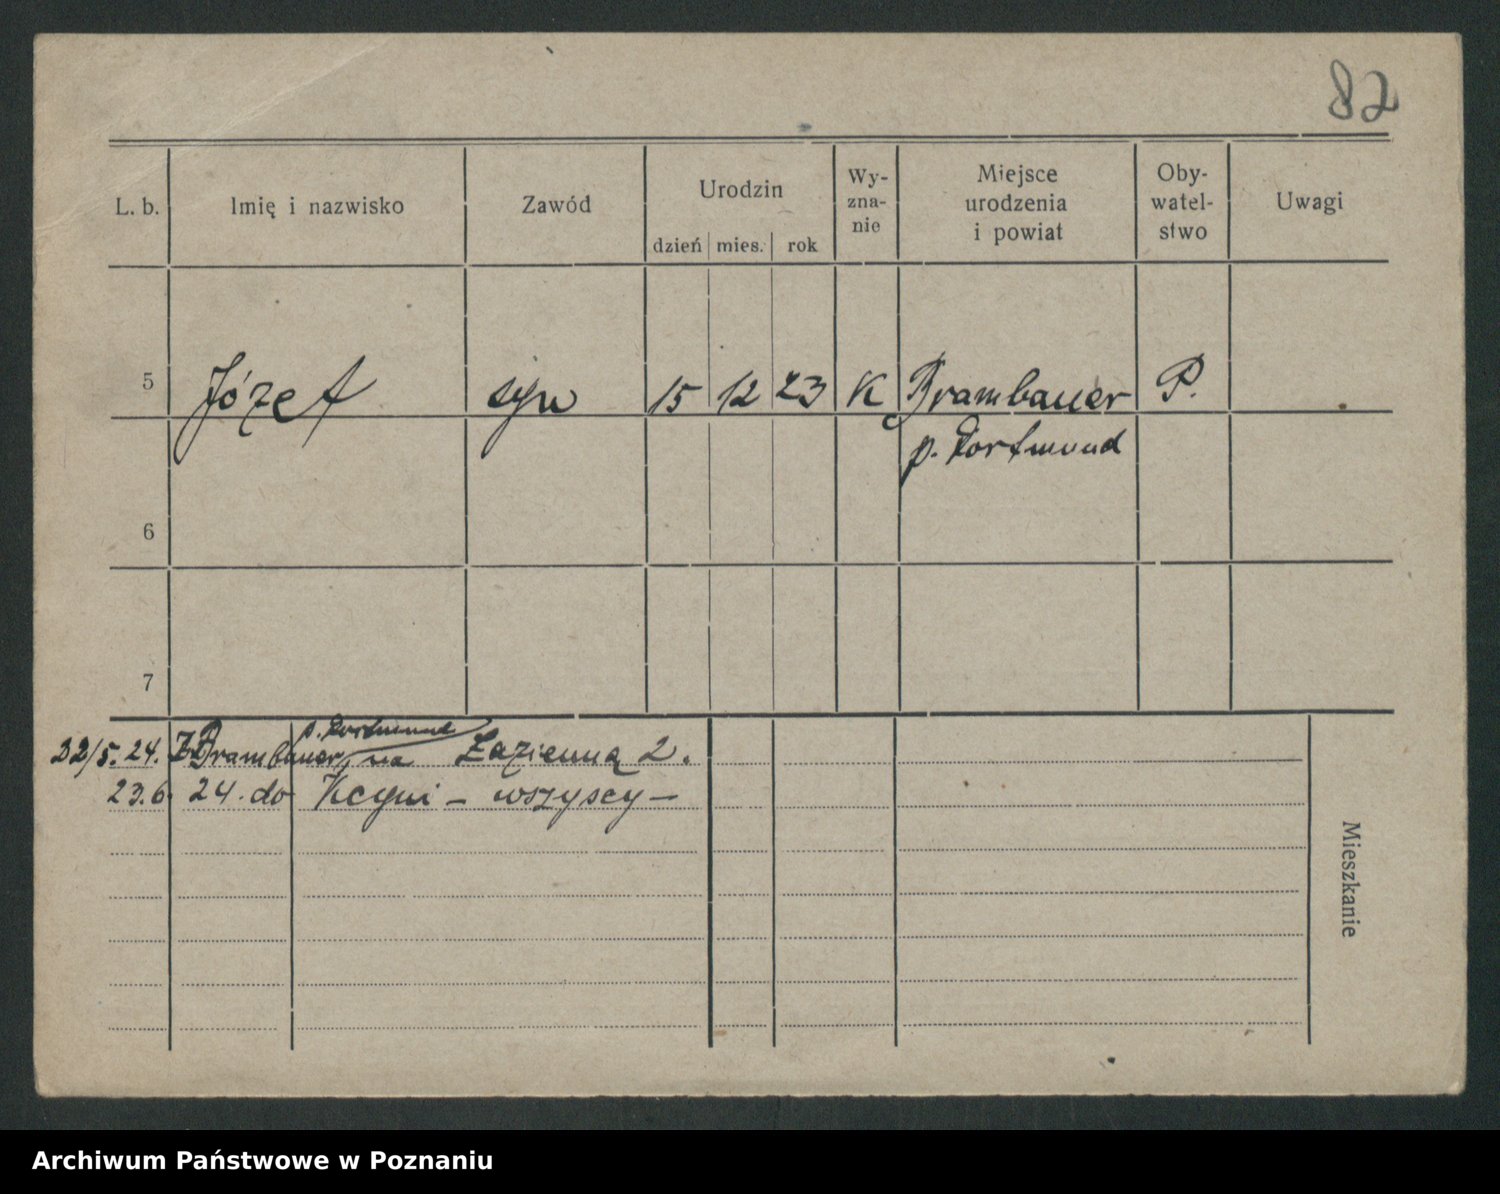 82
L. b.
Imię i nazwisko
Zawód
Urodzin
dzień mies. rok
Wy-
zna-
nie
Miejsce
urodzenia
i powiat
Oby-
watel-
stwo
Uwagi
5 Józef syn 15 12 23 K Brambauer P.
p. Dortmund
6
7
p. Dortmund
22/5. 24. Z Brambauer, na Łazienną 2.
23.6. 24. do Kcyni – wszyscy –
Mieszkanie
Archiwum Państwowe w Poznaniu